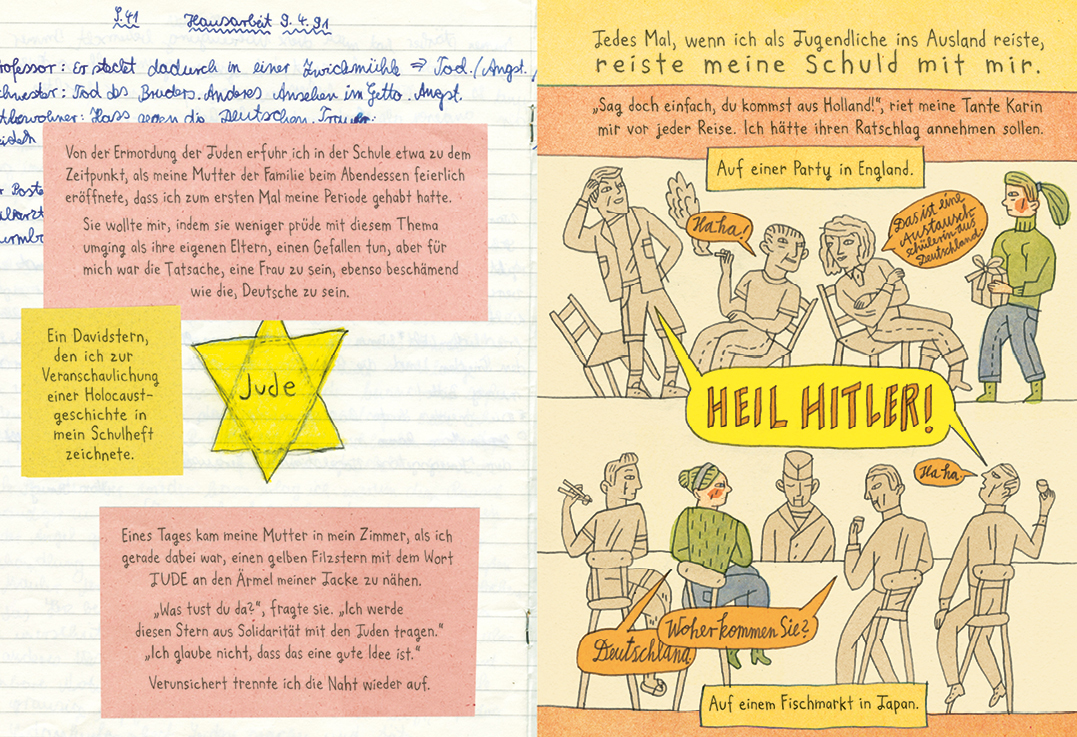 S.41 Hausarbeit 9.4.91
rofessor: Er steckt dadurch in einer Zwickmühle ⇒ Tod./Angst./
chwester: Tod des Bruders. Anderes Ansehen im Getto. Angst.
ttbewohner: Hass gegen die Deutschen. Trauer.
Von der Ermordung der Juden erfuhr ich in der Schule etwa zu dem
Zeitpunkt, als meine Mutter der Familie beim Abendessen feierlich
eröffnete, dass ich zum ersten Mal meine Periode gehabt hatte.
Sie wollte mir, indem sie weniger prüde mit diesem Thema
umging als ihre eigenen Eltern, einen Gefallen tun, aber für
mich war die Tatsache, eine Frau zu sein, ebenso beschämend
wie die, Deutsche zu sein.
Ein Davidstern,
den ich zur
Veranschaulichung
einer Holocaust-
geschichte in
mein Schulheft
zeichnete.
Jude
Eines Tages kam meine Mutter in mein Zimmer, als ich
gerade dabei war, einen gelben Filzstern mit dem Wort
JUDE an den Ärmel meiner Jacke zu nähen.
„Was tust du da?“, fragte sie. „Ich werde
diesen Stern aus Solidarität mit den Juden tragen.“
„Ich glaube nicht, dass das eine gute Idee ist.“
Verunsichert trennte ich die Naht wieder auf.
Jedes Mal, wenn ich als Jugendliche ins Ausland reiste,
reiste meine Schuld mit mir.
„Sag doch einfach, du kommst aus Holland!“, riet meine Tante Karin
mir vor jeder Reise. Ich hätte ihren Ratschlag annehmen sollen.
Auf einer Party in England.
Haha!
Das ist eine
Austausch-
schülerin aus
Deutschland.
HEIL HITLER!
Ha ha.
Woher kommen Sie?
Deutschland.
Auf einem Fischmarkt in Japan.